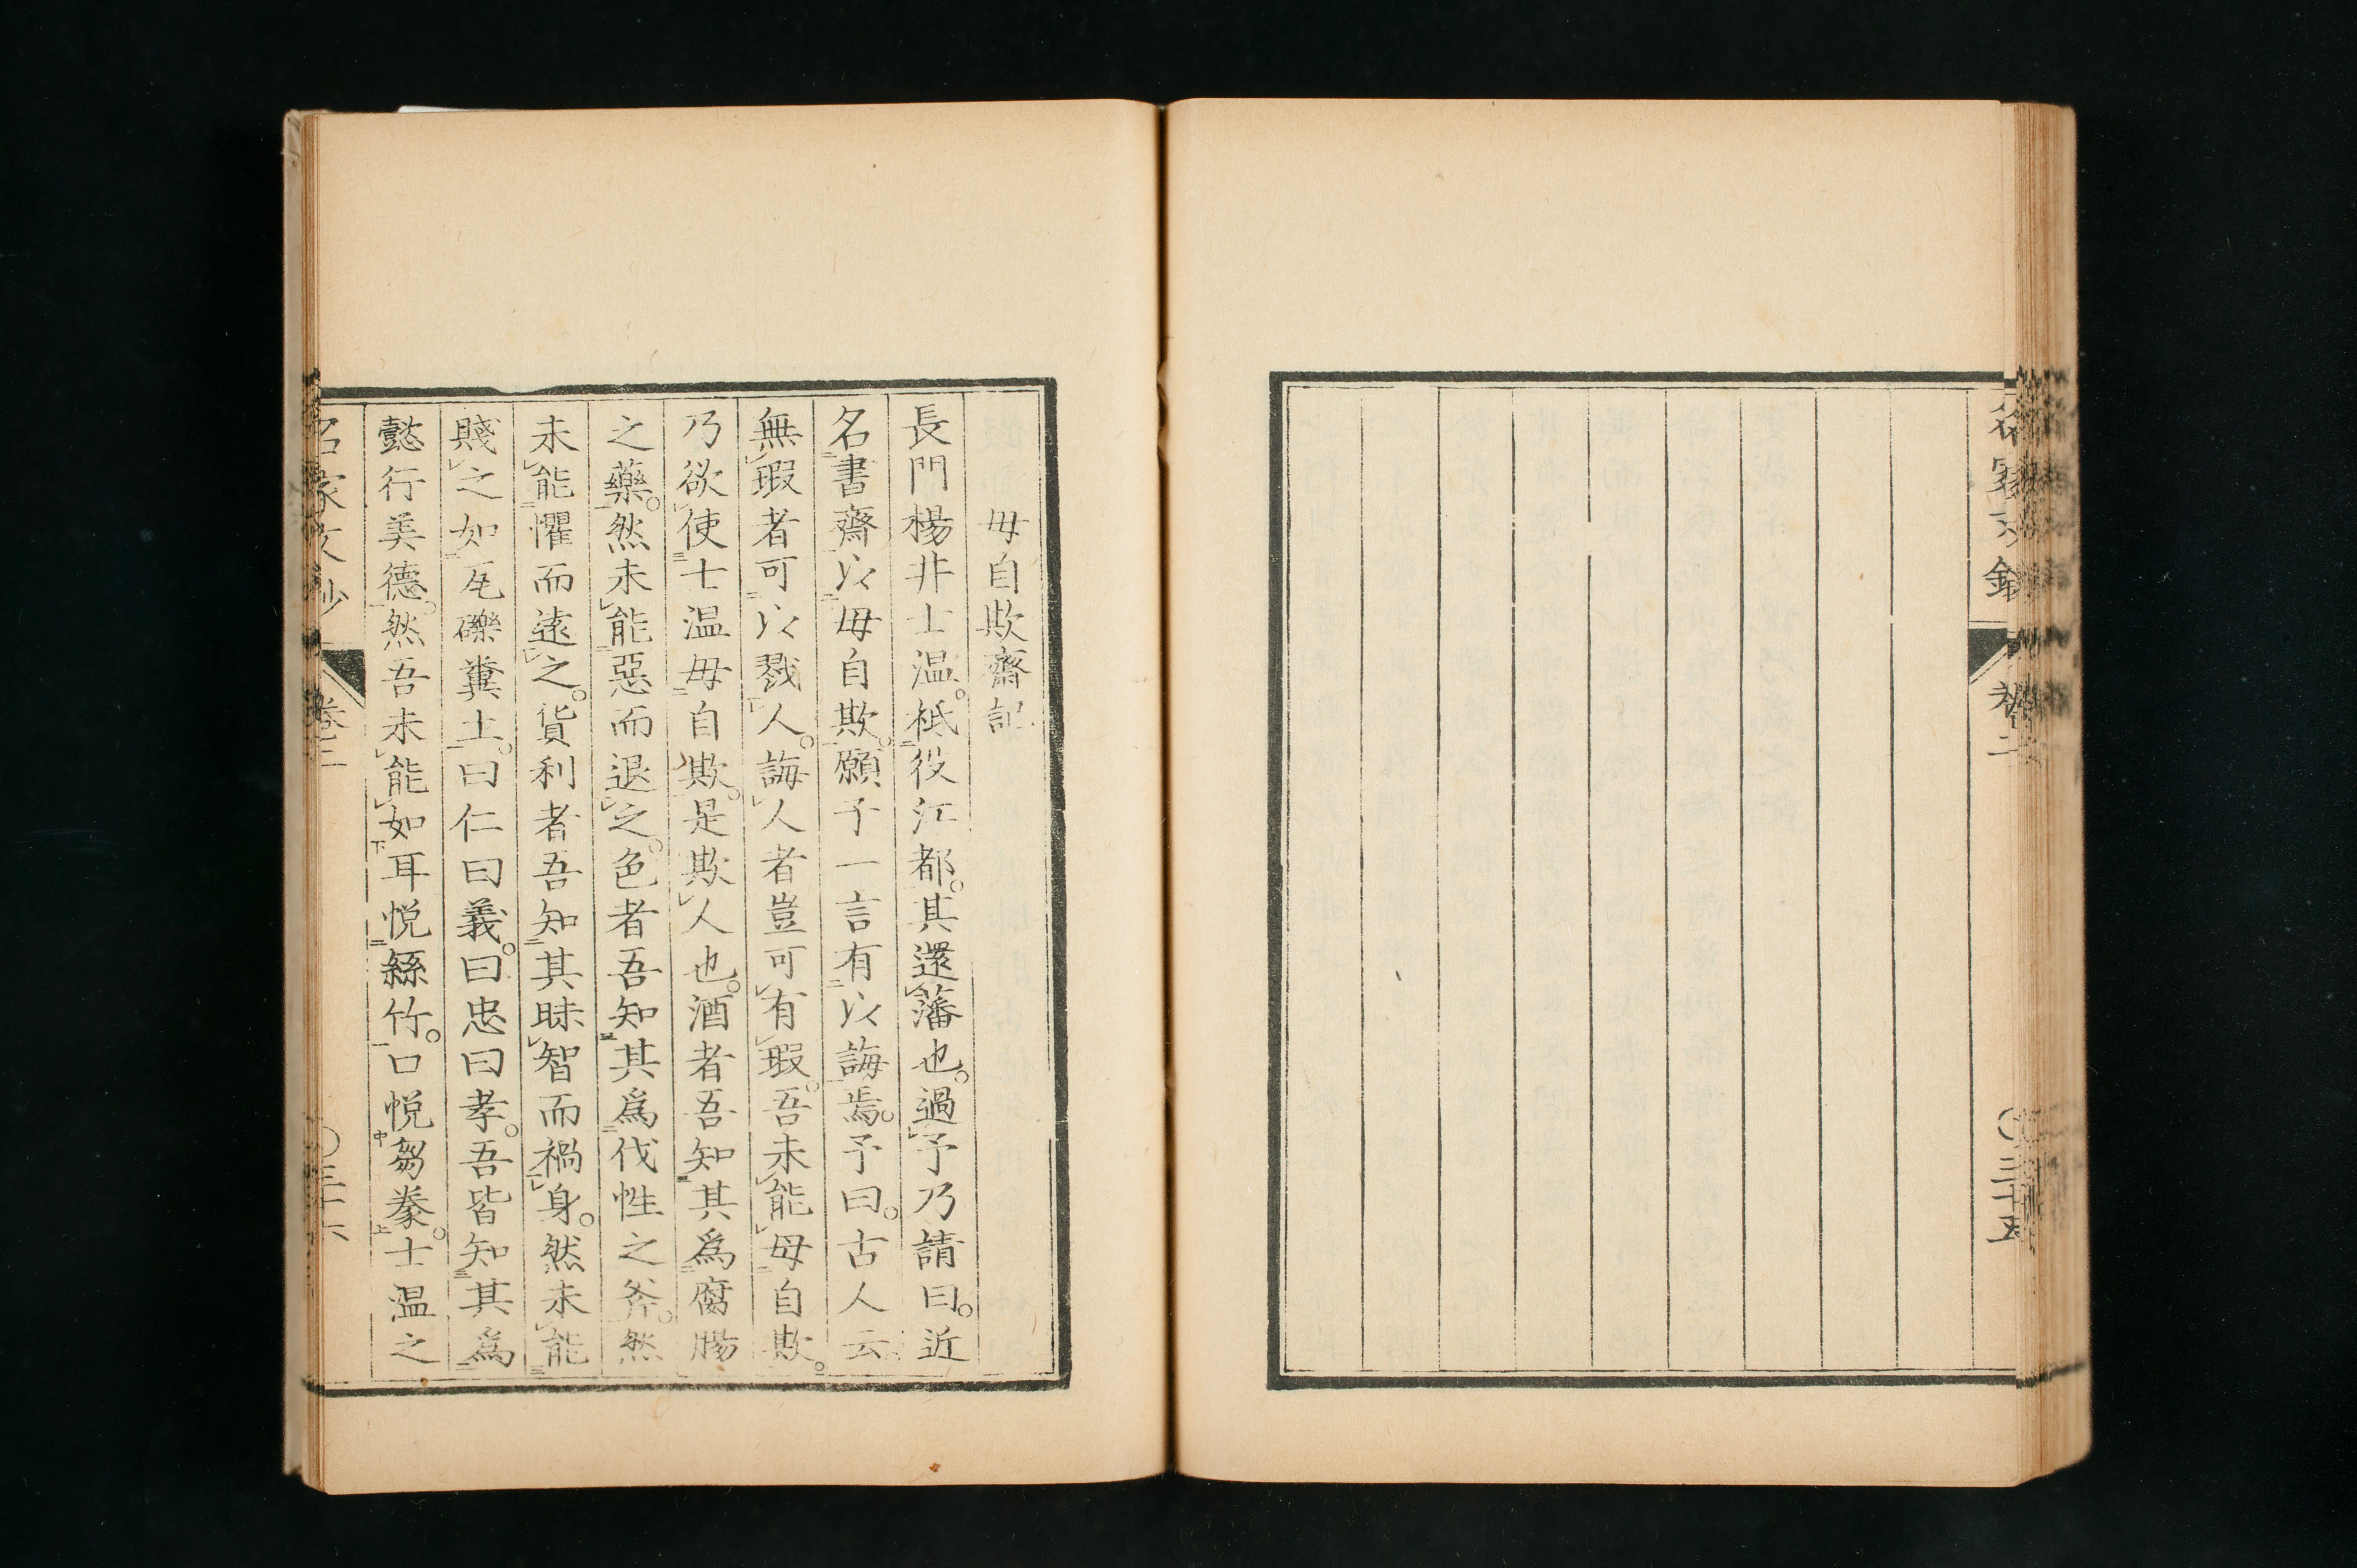 名家文鈔
卷二
〇三十五
毋自欺齋記
長門楊井士温。祗役江都。其還藩也。過予乃請曰。近
名書齋以毋自欺。願子一言有以誨焉。予曰。古人云
無瑕者可以戮人。誨人者豈可有瑕。吾未能毋自欺。
乃欲使士温毋自欺。是欺人也。酒者吾知其爲腐膓
之藥。然未能惡而退之。色者吾知其爲伐性之斧。然
未能懼而遠之。貨利者吾知其昧智而禍身。然未能
賤之如瓦礫糞土。曰仁曰義。曰忠曰孝。吾皆知其爲
懿行美德。然吾未能如耳悦絲竹。口悦芻豢。士温之
名家文鈔
卷二
〇三十六